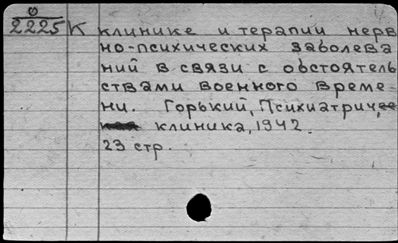 2225 К клинике и терапии нерв
но-психических заболева
ний в связи с обстоятель
ствами военного време-
ни. Горький, Психиатриче
ская клиника, 1942.
23 стр.